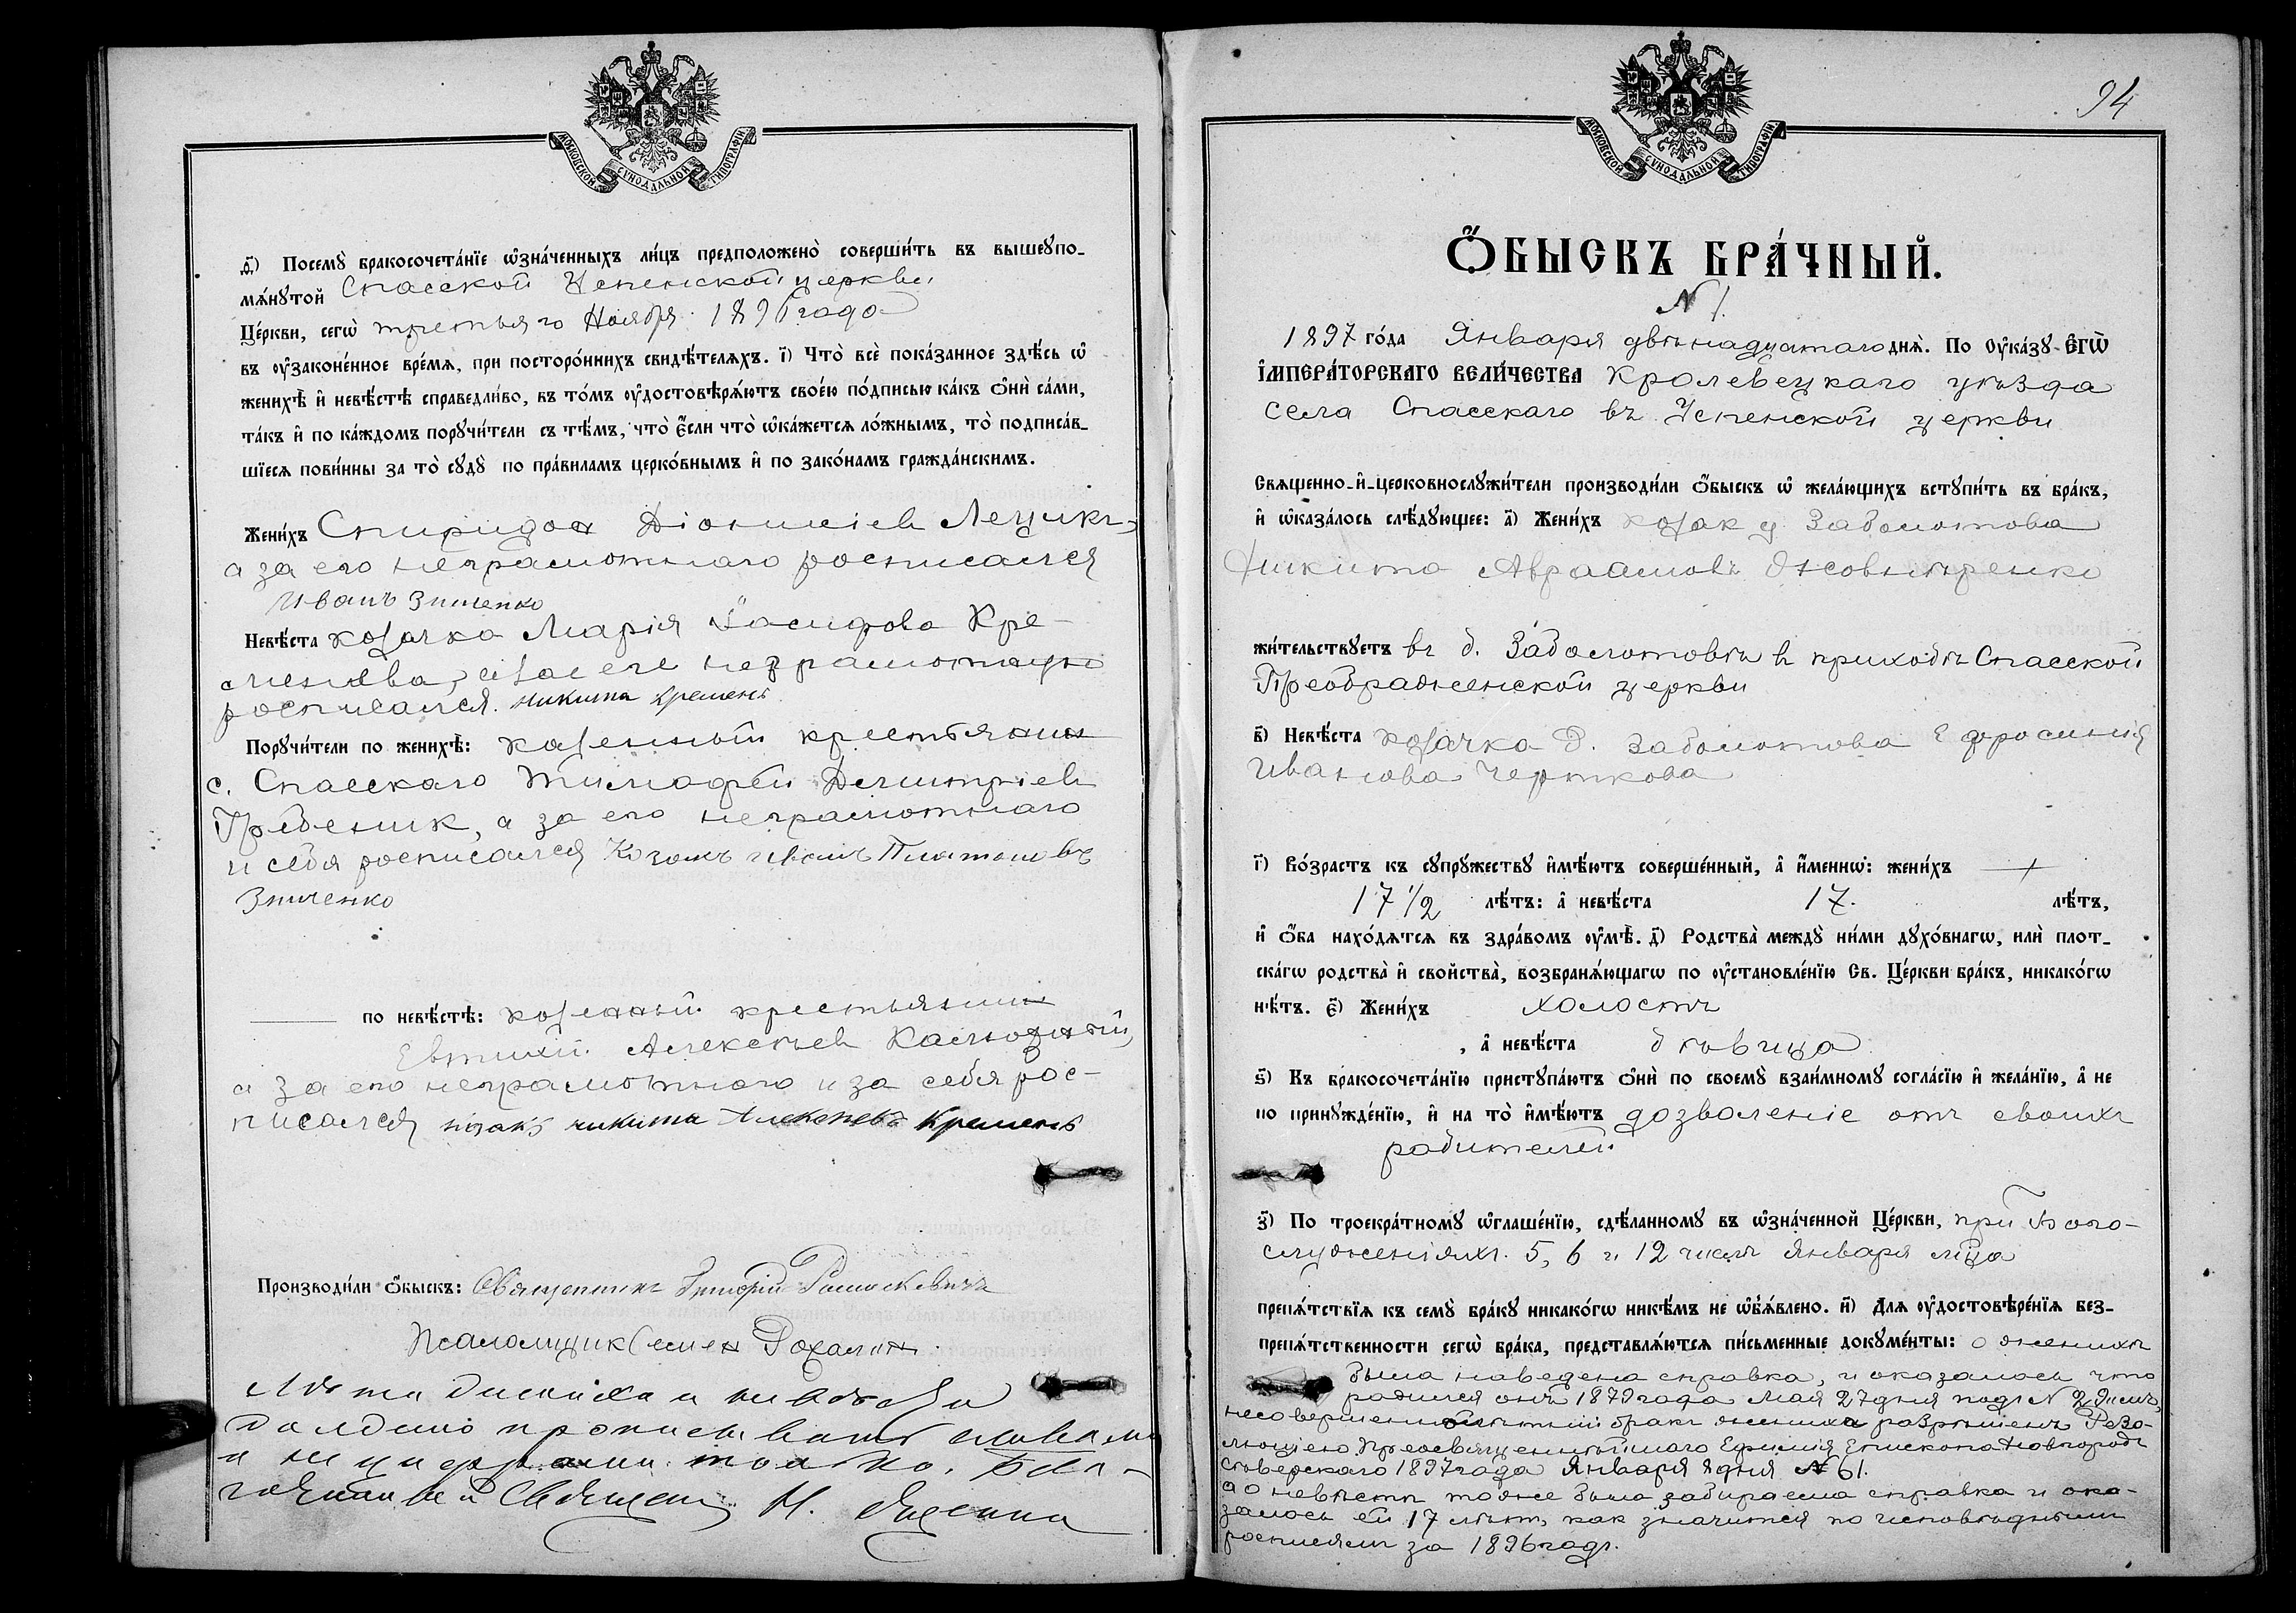 МОСКОВСКОЙ СѴНОДАЛЬНОЙ ТИПОГРАФІИ
ѳ҃) Посемꙋ̀ бракосочета́нїе ѡ҆зна́ченныхъ ли́цъ предположено̀ соверши́ть въ вышеꙋпо-
мѧ́нꙋтой Спасской Успенской церкви
Це́ркви, сегѡ̀ третьяго Ноября 1896 года
въ ᲂу҆законе́нное вре́мѧ, при посторо́ннихъ свидѣ́телѧхъ. і҃) Что̀ всѐ пока́занное здѣ́сь ѡ҆
женихѣ̀ и҆ невѣ́стѣ справедли́во, въ то́мъ ᲂу҆достовѣрѧ́ютъ свое́ю по́дписью ка́къ ѻ҆нѝ са́ми,
та́къ и҆ по ка́ждомъ порꙋчи́тели съ тѣ́мъ, что̀ є҆́сли что̀ ѡ҆ка́жетсѧ ло́жнымъ, то̀ подписа́в-
шїесѧ пови́нны за то̀ сꙋдꙋ̀ по пра́виламъ церко́внымъ и҆ по зако́намъ гражда́нскимъ.
Жени́хъ Спиридон Діонисіев Лецикъ
а за его неграмотного росписался
Иванъ Зинченко
Невѣ́ста козачка Марія Іосифова Кре-
менева, а за нее неграмотную
росписался. никита кремень
Порꙋчи́тели по женихѣ̀: казенный крестьянин
с. Спасскаго Тимофей Димитріев
Гребеник, а за его неграмотнаго
и себя росписался Козакъ иванъ Платоновъ
Зинченко
по невѣ́стѣ: казенный крестьянин
Евтихій Алексѣев Калюжный,
а за его неграмотного и за себя рос-
писался козакъ никита Алексѣевъ Кремень
Производи́ли ѻ҆́быскъ: Священникъ Григорій Ромаскевичъ
Псаломщик Семен Рохалин.
Лѣта жениха и невѣсты
должно прописывать словами
а не цифрами только. Бла-
гочинный Священ. Н.
94
МОСКОВСКОЙ СѴНОДАЛЬНОЙ ТИПОГРАФІИ
Ѻ҆́БЫСКЪ БРА́ЧНЫЙ.
N 1.
1897 го́да Января двѣнадцатаго днѧ̀. По Оу҆ка́зꙋ Є҆ГѠ̀
І҆МПЕРА́ТОРСКАГО ВЕЛИ́ЧЕСТВА Кролевецкаго уѣзда
села Спасскаго въ Успенской церкви
Свѧщенно-и҆-церковнослꙋжи́тели производи́ли ѻ҆́быскъ ѡ҆ жела́ющихъ встꙋпи́ть въ бра́къ,
и҆ ѡ҆каза́лось слѣ́дꙋющее: а҃) Жени́хъ козак д Заболотова
Никита Авраамовъ Ожовитренко
жи́тельствꙋетъ въ д. Заболотовѣ в приходѣ Спасской
Преображенской церкви
в҃) Невѣ́ста козачка д. Заболотова Ефросинія
Иванова Черткова
г҃) Во́зрастъ къ сꙋпрꙋ́жествꙋ и҆мѣ́ютъ соверше́нный, а҆ и҆́менно: жени́хъ
17 1/2 лѣ́тъ: а҆ невѣ́ста 17. лѣ́тъ,
и҆ ѻ҆́ба нахо́дѧтсѧ въ здра́вомъ ᲂу҆мѣ̀. д҃) Родства̀ междꙋ̀ ни́ми дꙋхо́внагѡ, илѝ плот-
ска́гѡ родства̀ и҆ свойства̀, возбранѧ́ющагѡ по ᲂу҆становле́нїю Св. Це́ркви бра́къ, никако́гѡ
нѣ́тъ. є҃) Жени́хъ холостъ
, а҆ невѣ́ста дѣвица
ѕ҃) Къ бракосочета́нїю пристꙋпа́ютъ ѻ҆нѝ по своемꙋ̀ взаи́мномꙋ согла́сїю и҆ жела́нїю, а҆ не
по принꙋжде́нїю, и҆ на то̀ и҆мѣ́ютъ дозволеніе отъ своихъ
родителей.
з҃) По троекра́тномꙋ ѡ҆глаше́нїю, сдѣ́ланномꙋ въ ѡ҆зна́ченной Це́ркви, при Бого-
служеніяхъ. 5, 6 и 12 чиселъ Января м͠ца
препѧ́тствїѧ къ семꙋ̀ бра́кꙋ никако́гѡ никѣ́мъ не ѡ҆б̾ѧ́влено. и҃) Длѧ ᲂу҆достовѣре́нїѧ без-
препѧ́тственности сегѡ̀ бра́ка, представлѧ́ютсѧ пи́сьменные докꙋме́нты: о женихѣ
была наведена справка, и оказалось что
родился онъ 1879 года Мая 27 дня подъ N
несовершеннолѣтній бракъ жениха разрѣшенъ Резо-
люціею Преосвященнѣйшаго Ефимія Епископа Новгородъ
Сѣверскаго 1897 года Января 8 дня N 61.
а о невѣстѣ тоже была забираема справка и ока-
залось ей 17 лѣтъ, как значится по исповѣднымъ
росписямъ за 1896 годъ.